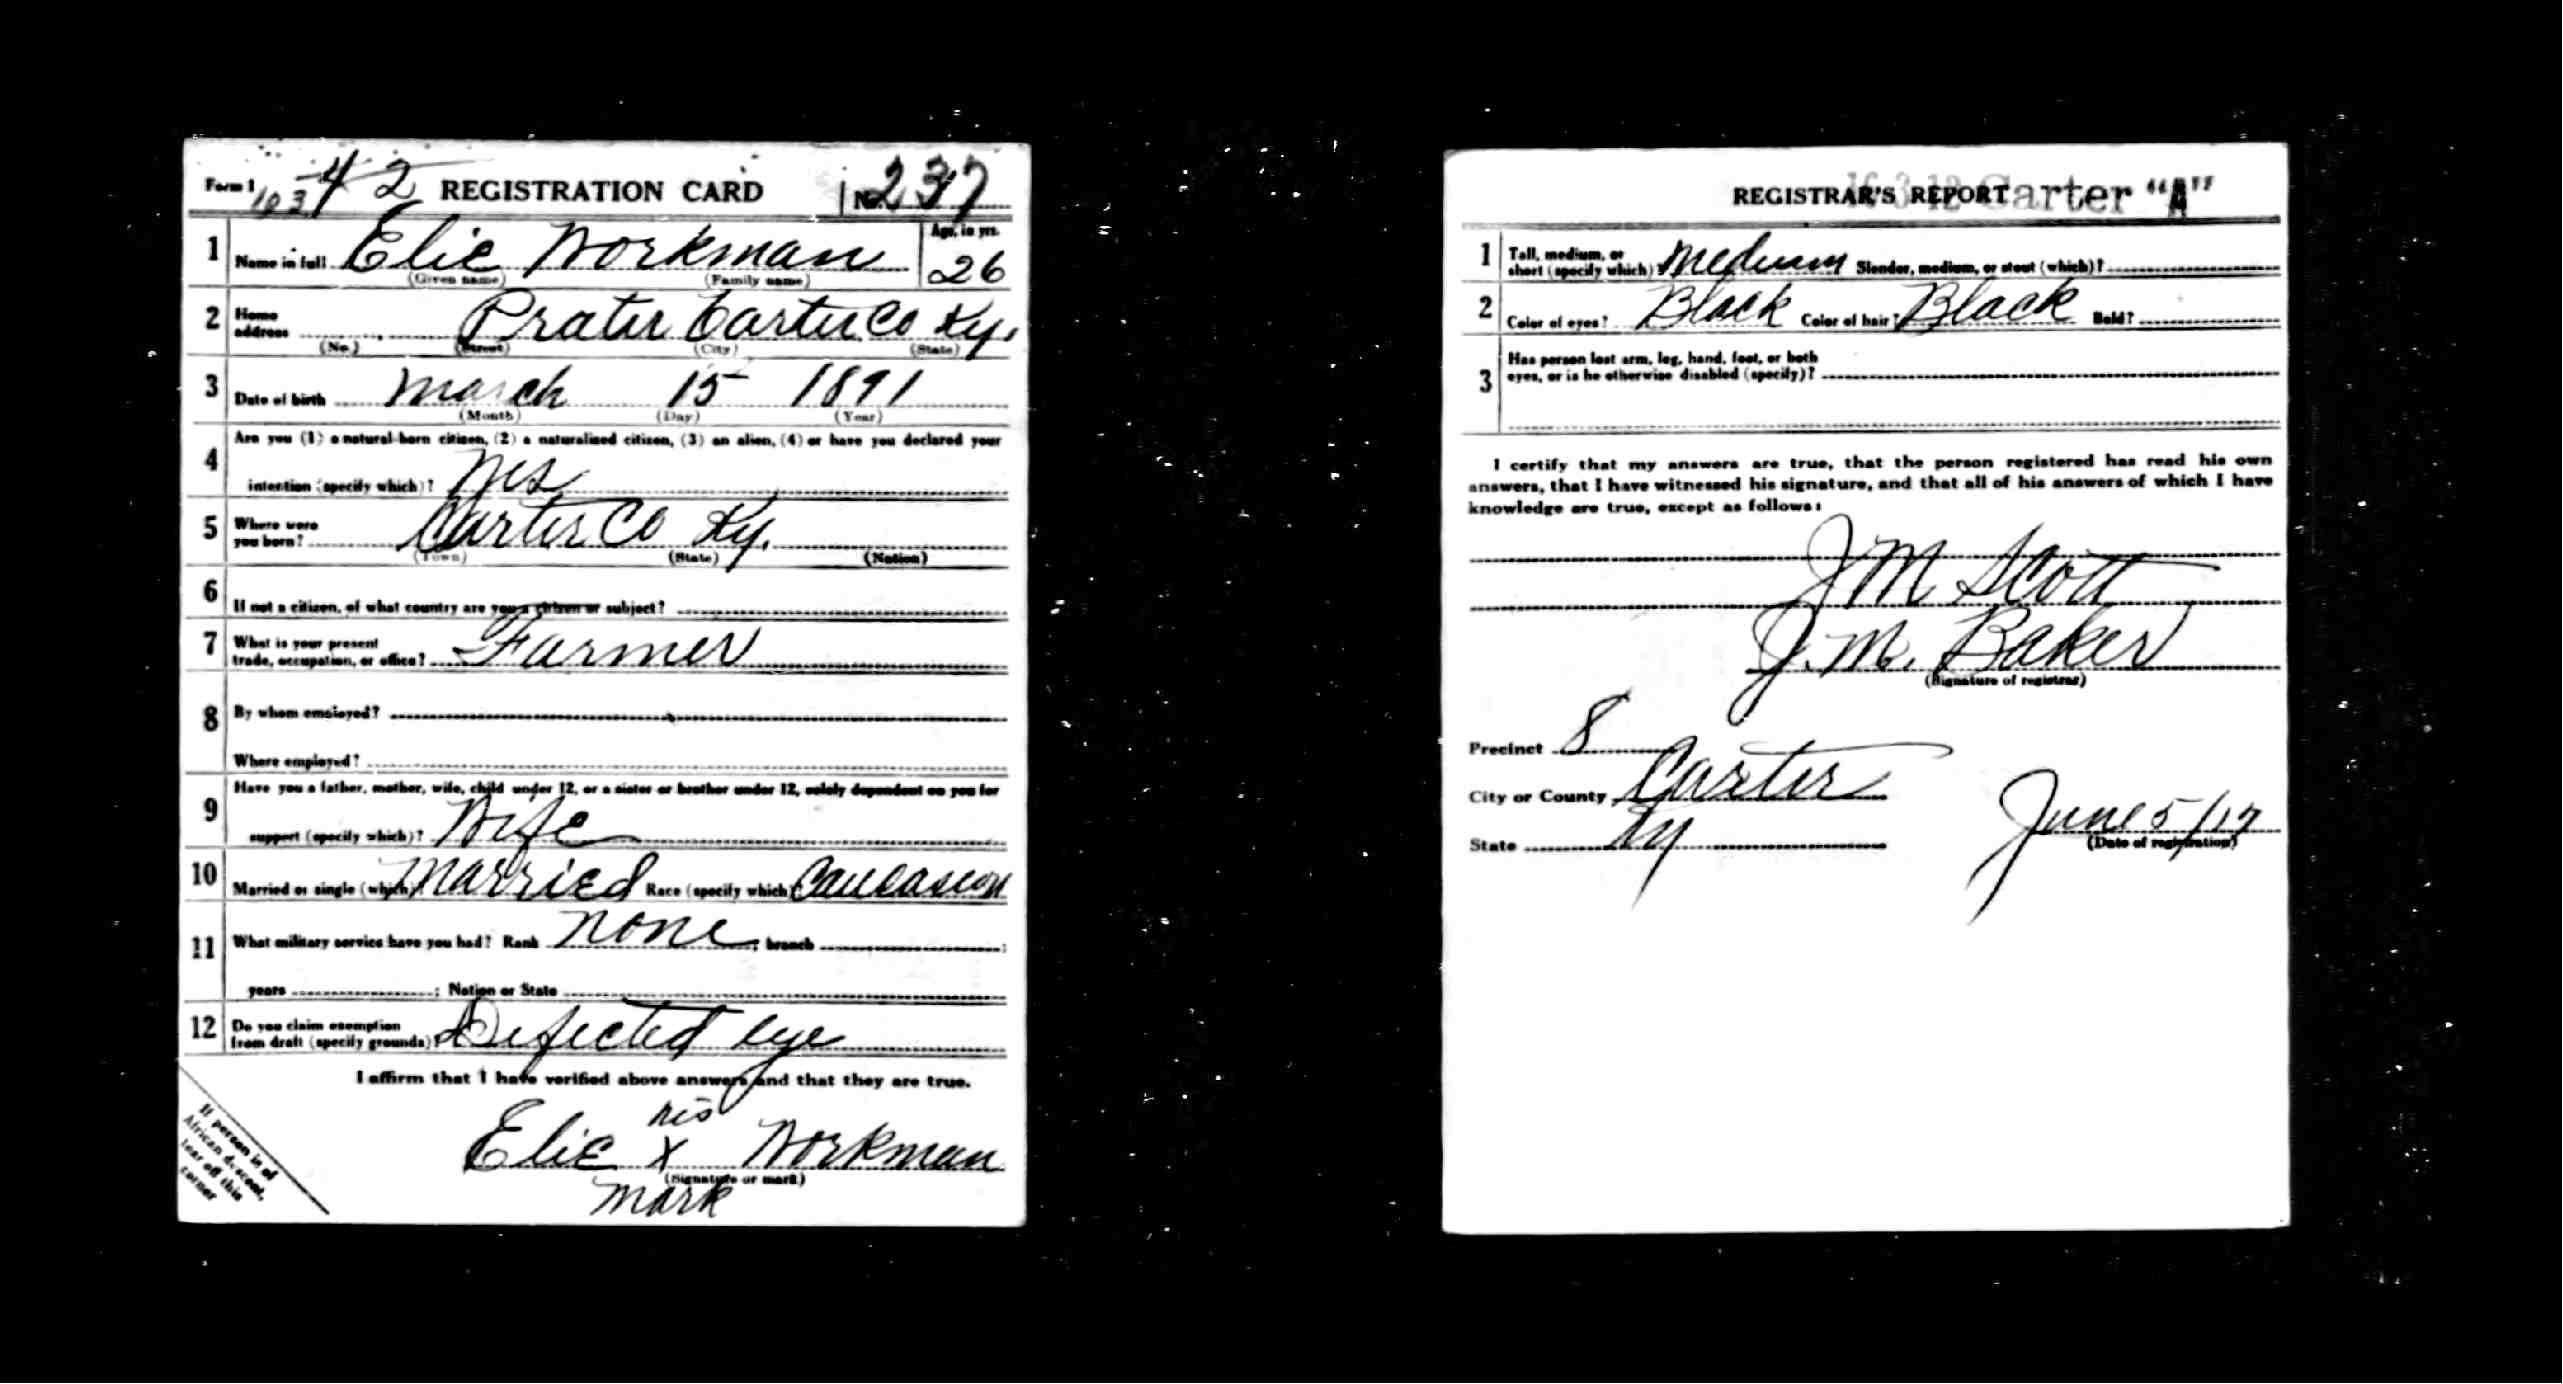 Form 1 REGISTRATION CARD No. 237
1 Name in full Elie Workman Age, in yrs. 26
(Given name) (Family name)
2 Home address Prater Carter Co Ky.
(No.) (Street) (City) (State)
3 Date of birth March 15 1891
(Month) (Day) (Year)
4 Are you (1) a natural-born citizen, (2) a naturalized citizen, (3) an alien, (4) or have you declared your
intention (specify which)? Yes
5 Where were you born? Carter Co Ky.
(Town) (State) (Nation)
6 If not a citizen, of what country are you a citizen or subject?
7 What is your present trade, occupation, or office? Farmer
8 By whom employed?
Where employed?
9 Have you a father, mother, wife, child under 12, or a sister or brother under 12, solely dependent on you for
support (specify which)? Wife
10 Married or single (which)? Married Race (specify which)? Caucasion
11 What military service have you had? Rank None ; branch ;
years ; Nation or State
12 Do you claim exemption from draft (specify grounds)? Defected eye
I affirm that I have verified above answers and that they are true.
his
Elie X Workman
(Signature or mark)
Mark
If person is of
African descent,
tear off this
corner
REGISTRAR'S REPORT Carter "A"
1 Tall, medium, or short (specify which)? Medium Slender, medium, or stout (which)?
2 Color of eyes? Black Color of hair? Black Bald?
3 Has person lost arm, leg, hand, foot, or both
eyes, or is he otherwise disabled (specify)?
I certify that my answers are true, that the person registered has read his own
answers, that I have witnessed his signature, and that all of his answers of which I have
knowledge are true, except as follows:
J M Scott
J. M. Baker
(Signature of registrar)
Precinct 8
City or County Carter
State Ky June 5/17
(Date of registration)